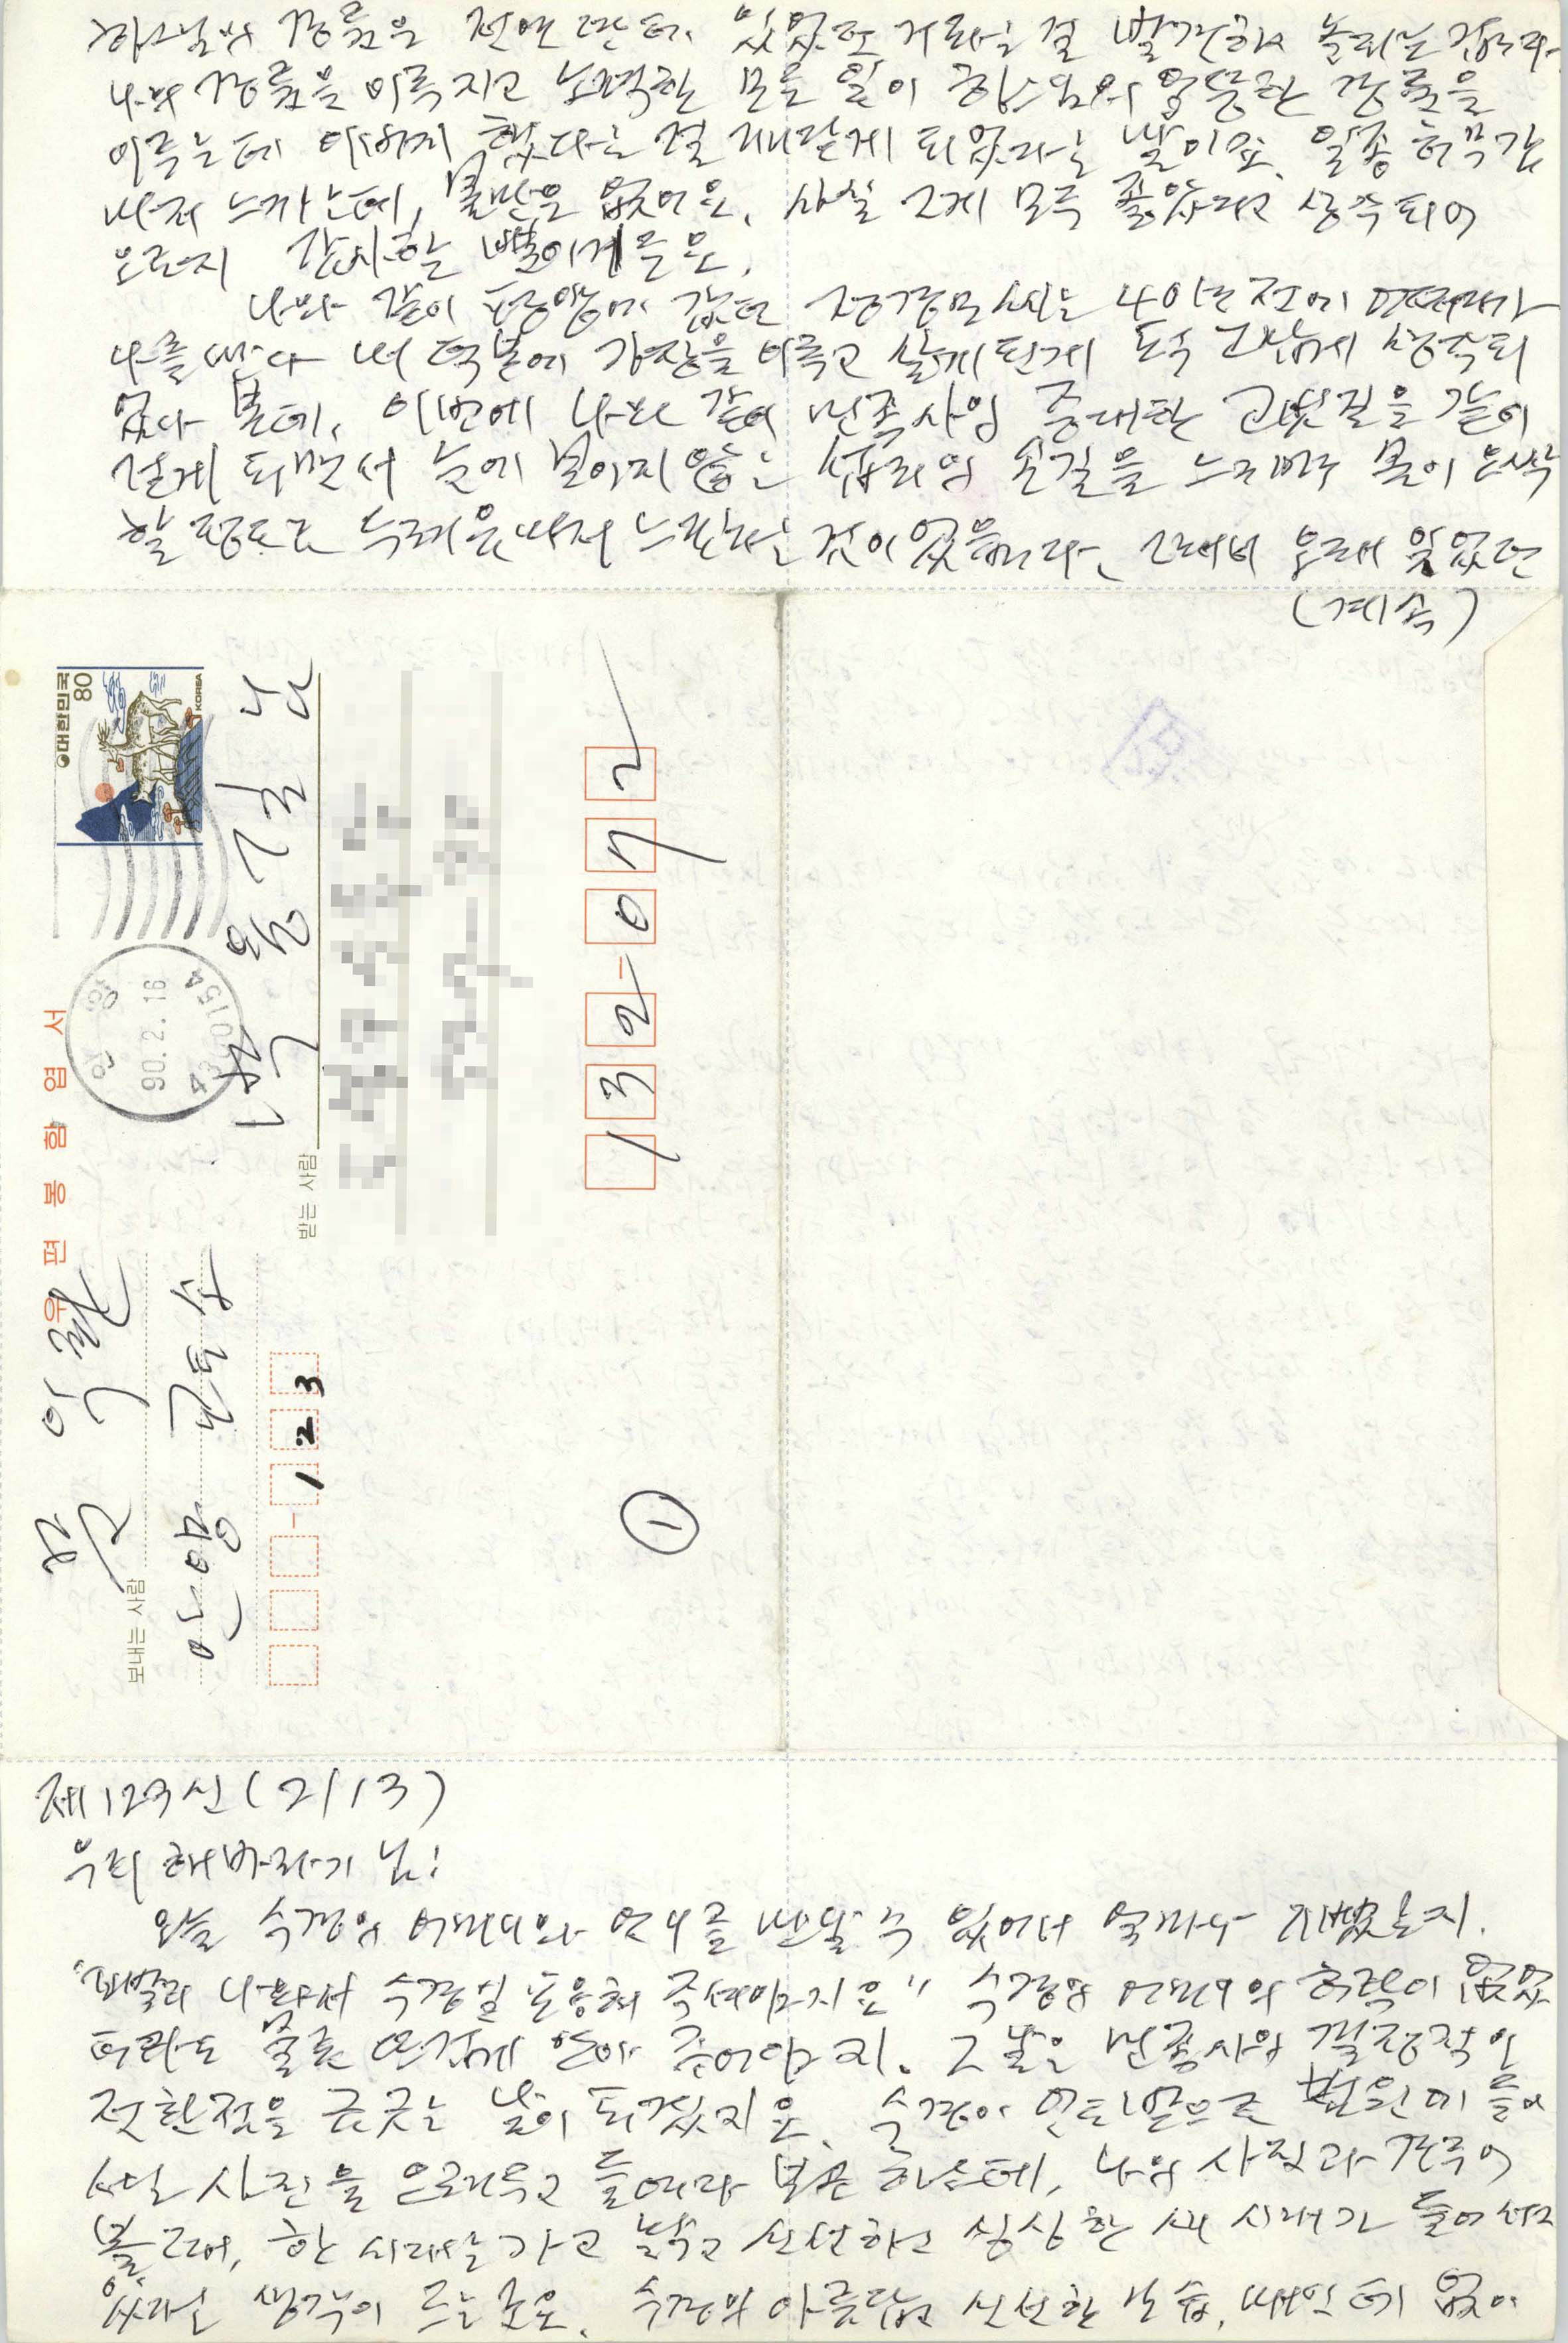 하느님의 경륜은 전연 딴 데 있었다는 걸 발견하고 놀라는 겁니다.
나의 경륜을 이룩하려고 노력한 모든 일이 하느님의 엉뚱한 경륜을
이루는데 이바지 했다는 걸 깨닫게 되었다는 말이오. 일종 허무감
마저 느끼는데, 불만은 없어요. 사실 그게 모두 좋았다고 생각되어
오로지 감사할 뿐이거든요.
나와 같이 평양에 갔던 정경모씨는 40년 전에
나를 만나 내 덕분에 가정을 이루고 살게 된게 도무지 고맙게 생각되
었나 본데, 이번에 나와 같이 민족사의 중대한 고빗길을 같이
걷게 되면서 눈에 보이지 않는 섭리의 손길을 느끼며 몸이 오싹
할 정도로 두려움마저 느낀다는 것이었습니다. 그래서 오래 잊었던
(계속)
대한민국 80 KOREA
우편봉함엽서
안양
90. 2. 16
430154
보내는 사람
문익환
안양교도소
123
받는 사람
박용길 님
132-072
①
제123신 (2/13)
우리 해바라기 님!
오늘 수경의 어머니와 언니를 만날 수 있어서 얼마나 기뻤는지.
"빨리 나와서 수경일 포옹해 주셔야지요" 수경의 어머니의 허락이 없었
더라도 물론 뜨겁게 안아 주어야지. 그날은 민족사의 결정적인
전환점을 긋는 날이 되겠지요. 수경이 맨발로 법원에 들어
서는 사진을 오려두고 들여다 보곤 하는데, 나의 사진과 견주어
볼 때, 한 시대가 가고 밝고 신선하고 싱싱한 새 시대가 들어서고
있다는 생각이 드는군요. 수경의 아름답고 신선한 모습, 때 없이